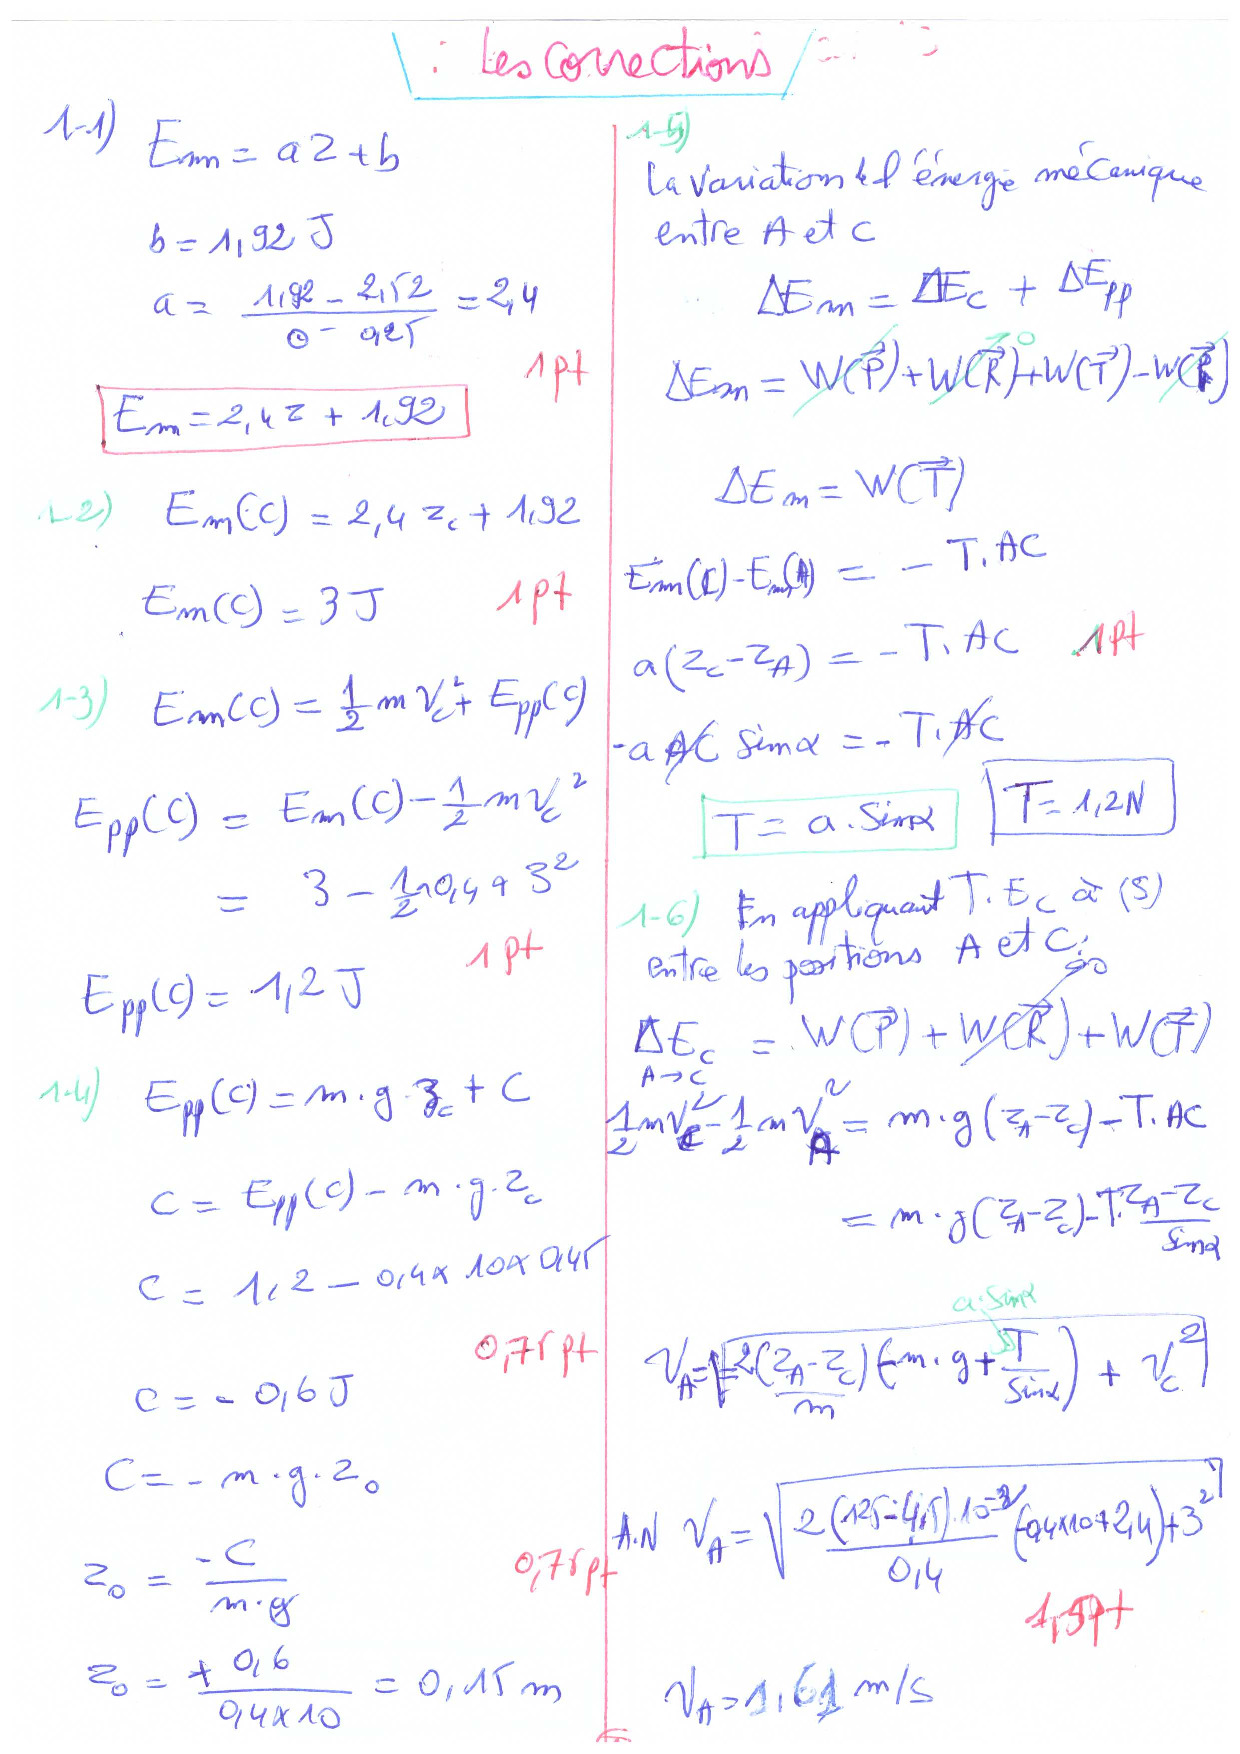 Les corrections
1-1) Em = az + b
b = 1,92 J
a = (1,92 - 2,52) / (0 - 0,25) = 2,4
1pt
Em = 2,4 z + 1,92
1-2) Em(C) = 2,4 zc + 1,92
Em(C) = 3 J 1pt
1-3) Em(C) = 1/2 m Vc² + Epp(C)
Epp(C) = Em(C) - 1/2 m Vc²
= 3 - 1/2 × 0,4 × 3²
1pt
Epp(C) = 1,2 J
1-4) Epp(C) = m·g·zc + C
C = Epp(C) - m·g·zc
C = 1,2 - 0,4 × 10 × 0,45
0,75pt
C = - 0,6 J
C = - m·g·z₀
z₀ = -C / m·g 0,75pt
z₀ = + 0,6 / 0,4×10 = 0,15 m
1-5)
La variation de l'énergie mécanique
entre A et C
ΔEm = ΔEc + ΔEpp
ΔEm = W(P) + W(R) + W(T) - W(P)
ΔEm = W(T)
Em(C) - Em(A) = - T. AC
a(zc - zA) = - T. AC 1pt
-a AC sin α = - T. AC
T = a. sin α T = 1,2 N
1-6) En appliquant T.Ec à (S)
entre les positions A et C:
ΔEc = W(P) + W(R) + W(T)
A→C
1/2 m Vc² - 1/2 m VA² = m·g(zA - zc) - T. AC
= m·g(zA - zc) - T. (zA - zc) / sin α
a. sin α
VA = √(2(zA - zc)/m (-m·g + T/sin α) + Vc²)
A.N VA = √(2(12,5-45).10⁻²/0,4 (-0,4×10+2,4)+3²)
1,5pt
VA = 1,61 m/s